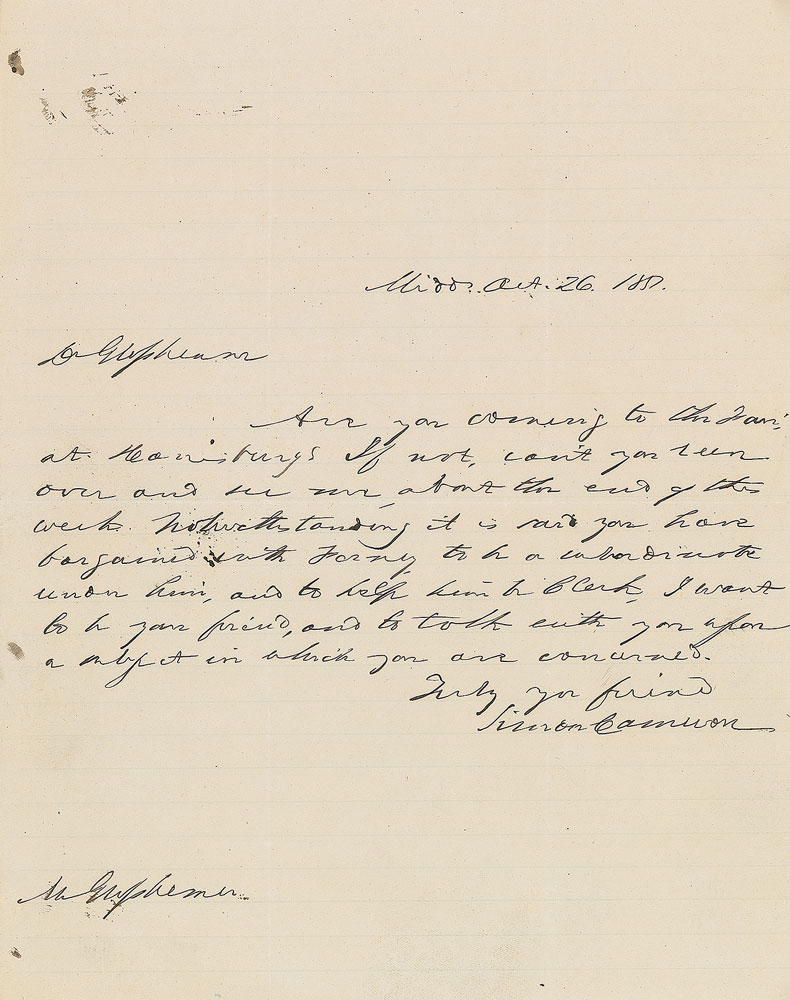 Midd. Oct. 26. 185
Dr
Are you coming to the Fair,
at Harrisburg? If not, can't you run
over and see me, about the end of this
week. Notwithstanding it is said you have
bargained with Forney to be a subordinate
under him, and to help him be Clerk, I want
to be your friend, and to talk with you upon
a subject in which you are concerned.
Truly your friend
Simon Cameron
Mr